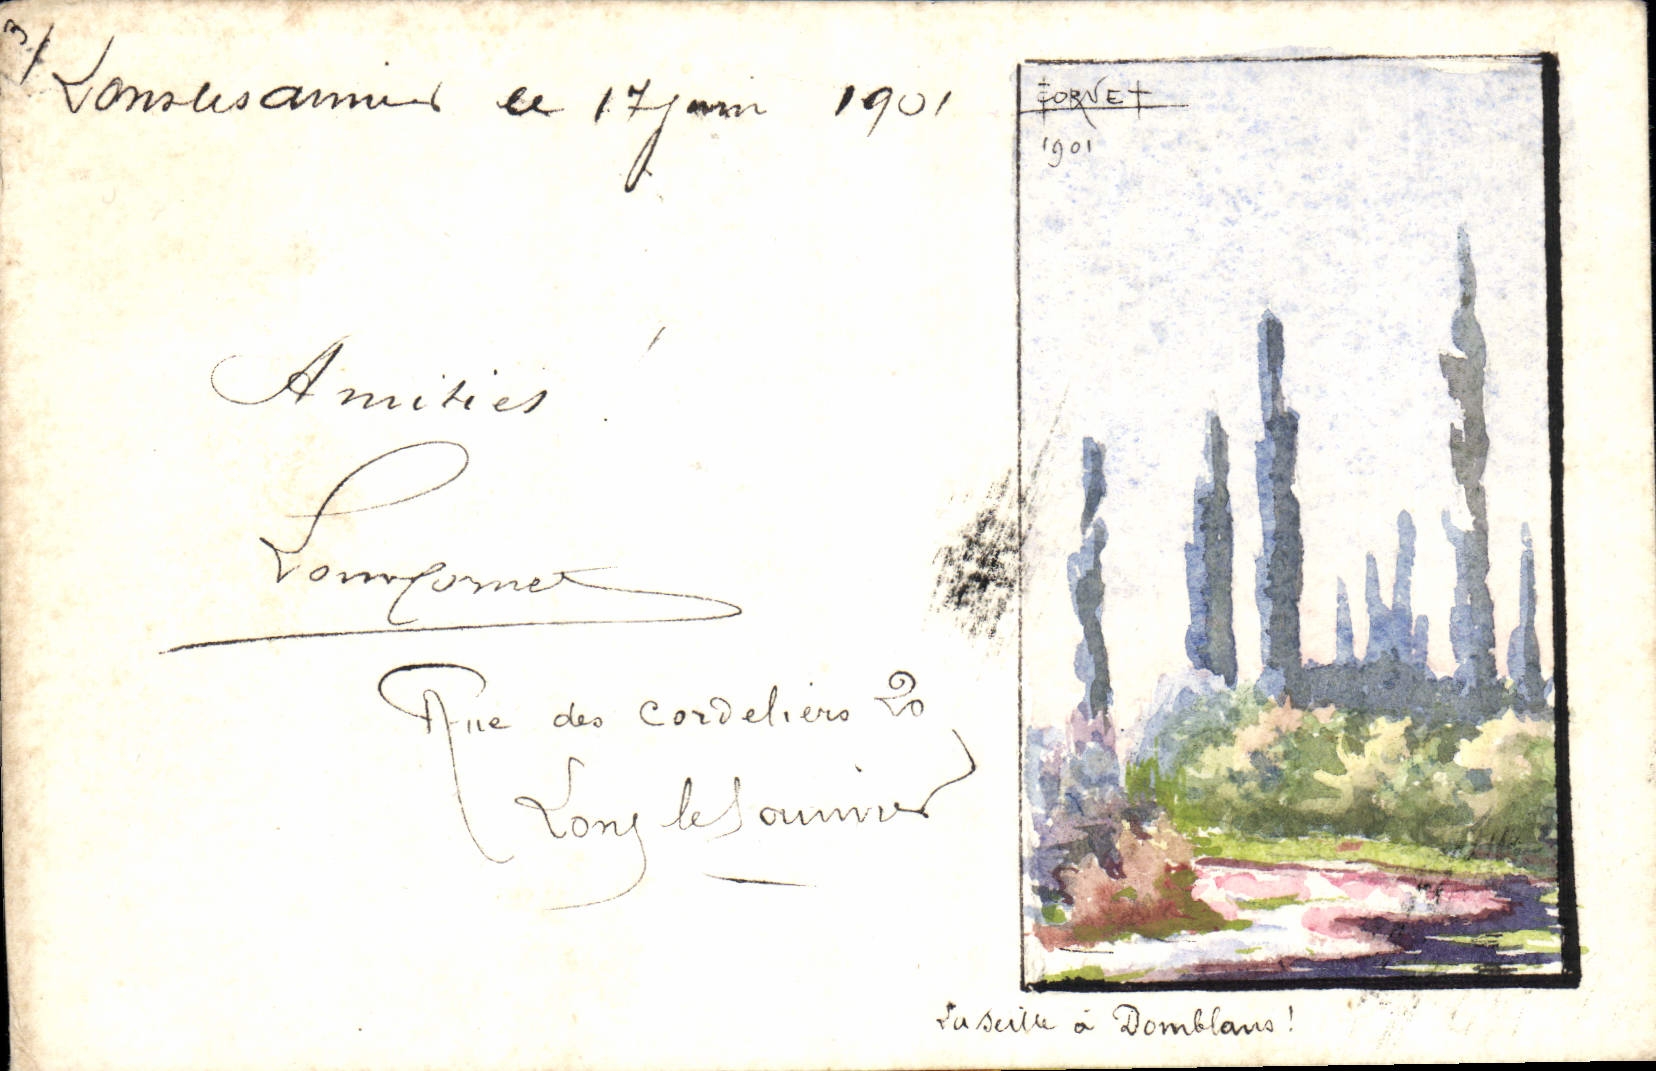 3/
Lonslesaunier le 17 juin 1901
CORNET
1901
Amitiés !
Louis Cornet
Rue des cordeliers 20
Lons le Saunier
La Seille à Domblans !